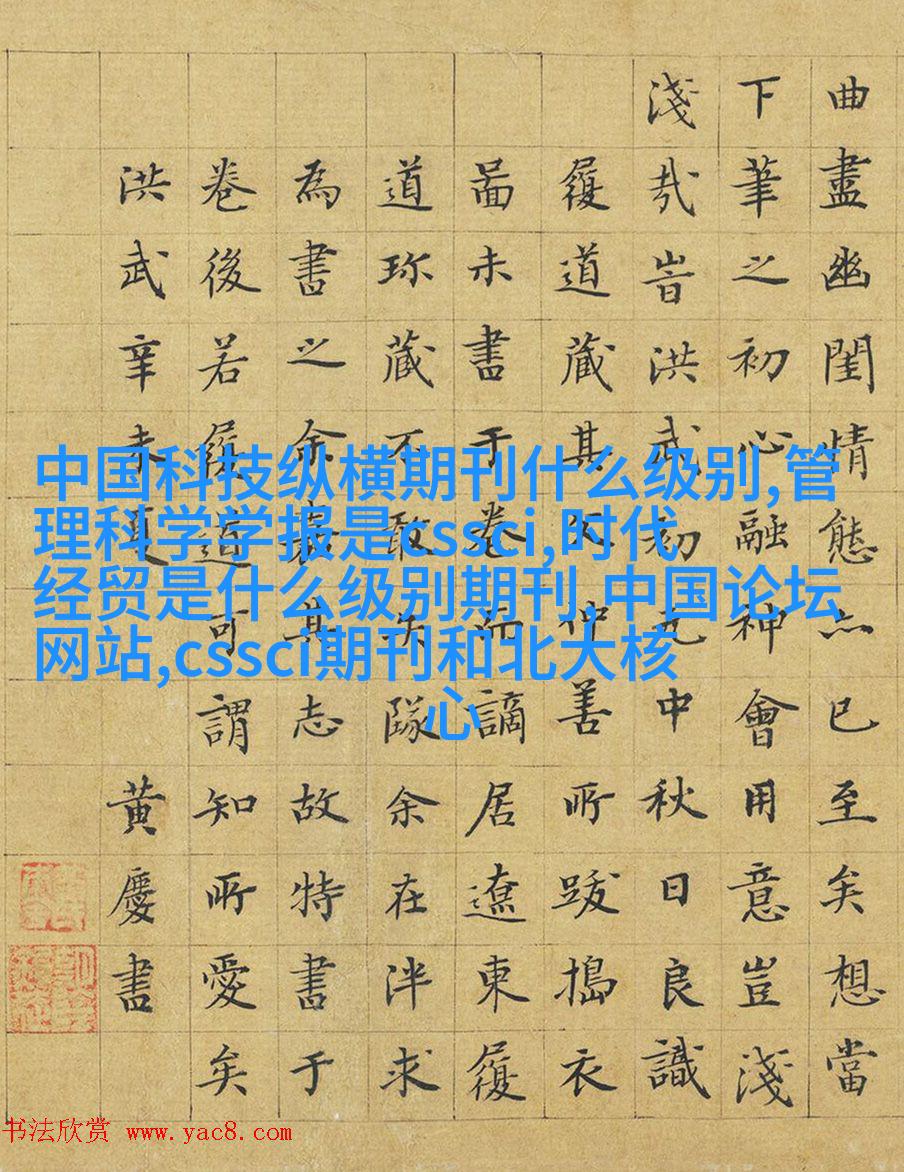 曲盡幽閨情態亦已至矣想當
下筆之初心融神會用意豈淺
淺哉旹洪武初元中秋日良識
履道藏其父仲善所跋搗衣
啚未書于卷而謫居遼東履
道珎藏不敢失隊余在泮求
為書之余嘉其志故特書于
卷後若履道可謂知所愛矣
洪武辛未夏 黃慶書
中国科技纵横期刊什么级别,管
理科学学报是cssci,时代
经贸是什么级别期刊,中国论坛
网站,cssci期刊和北大核
心
书法欣赏 www.yac8.com